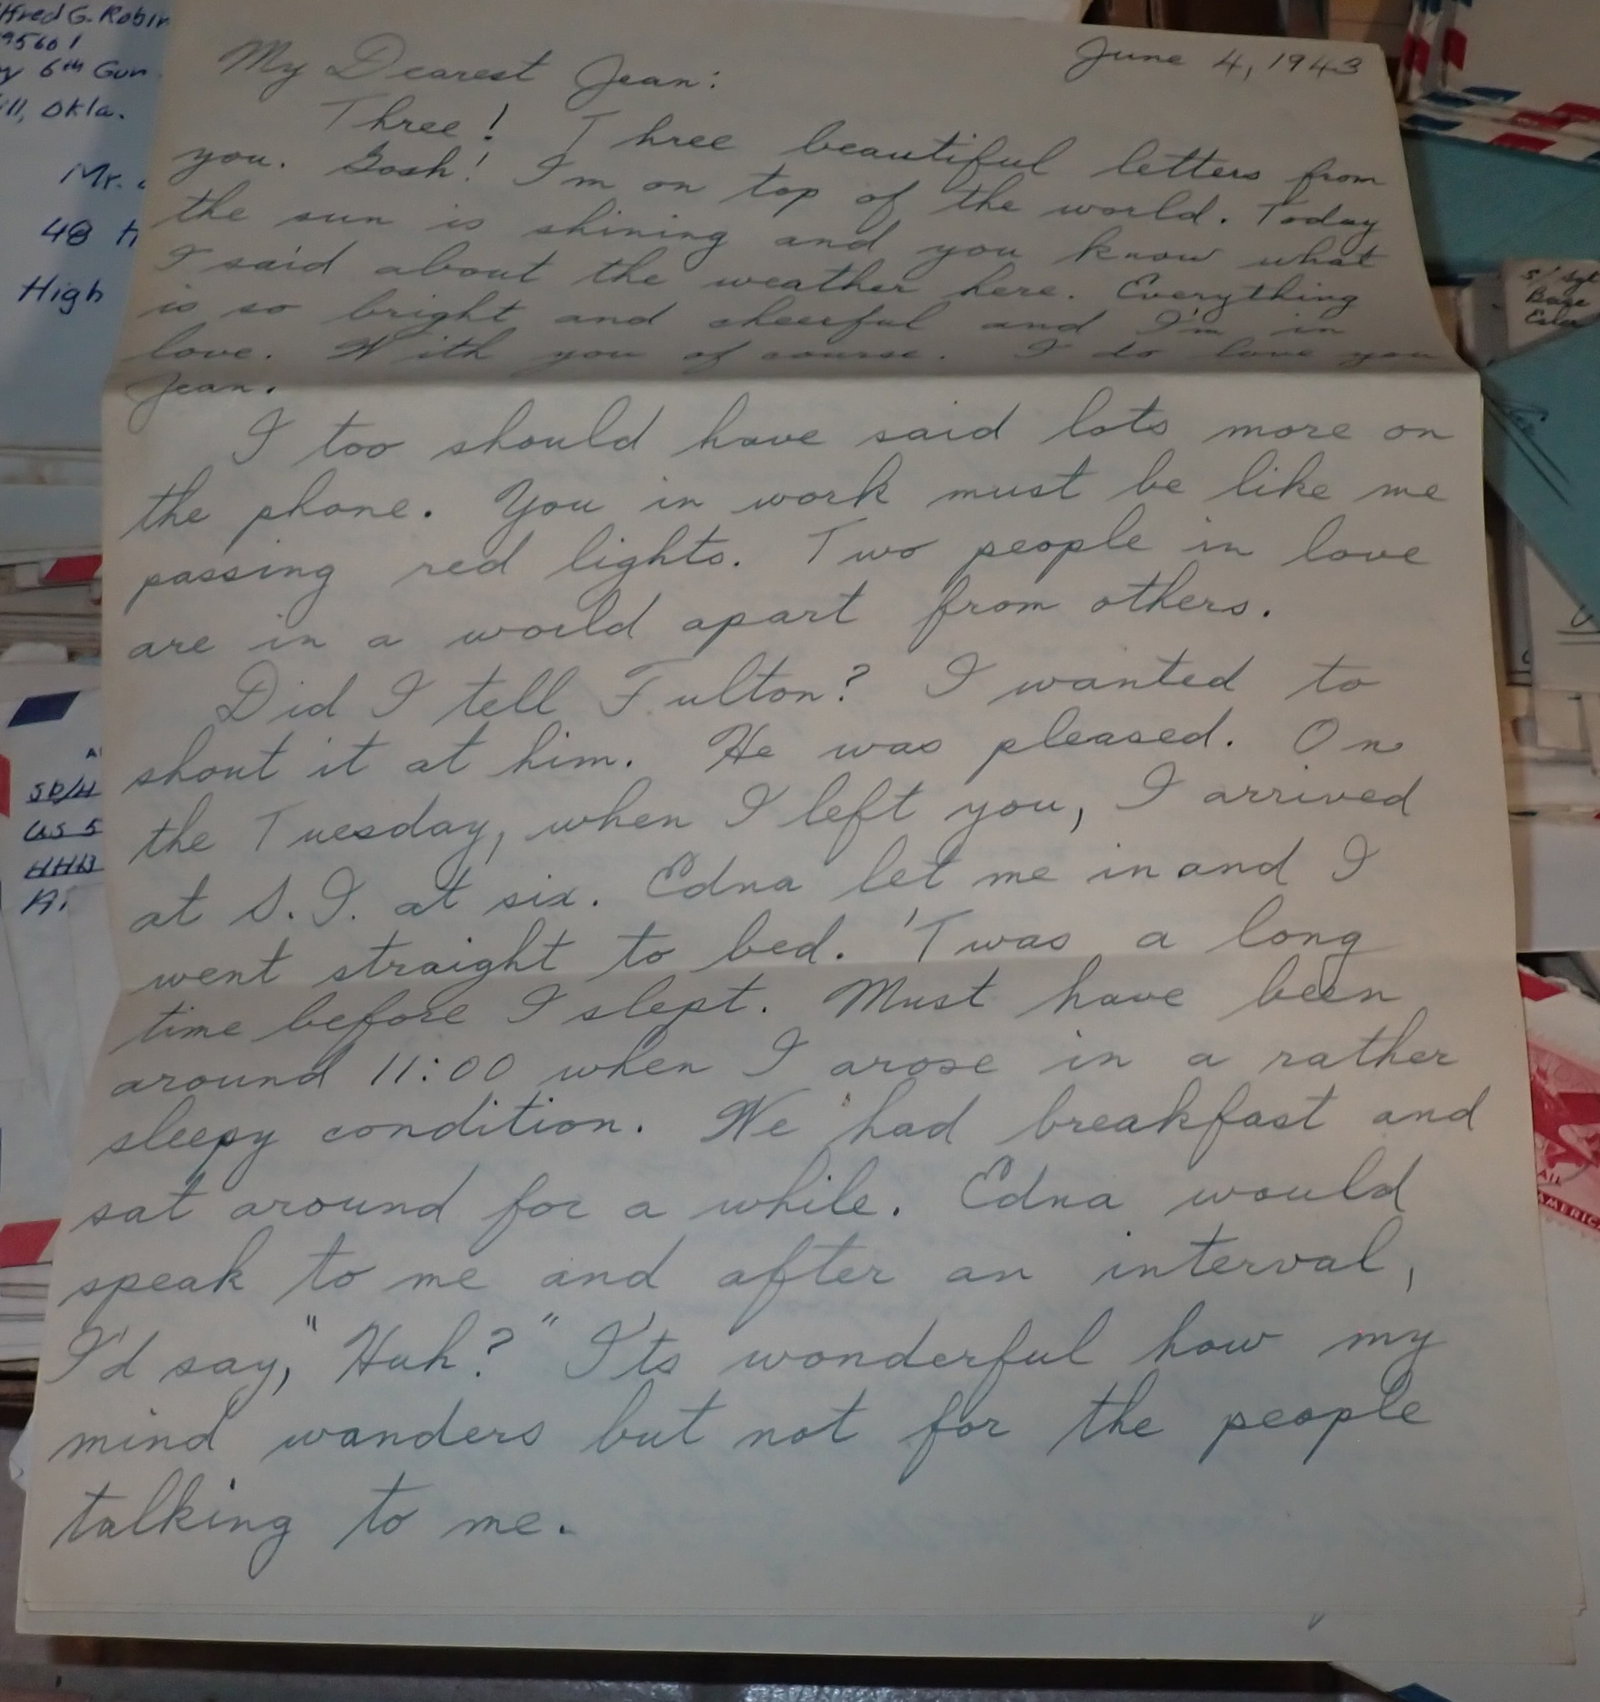 lfred G. Robin
95601
6th Gun
ill, Okla.
Mr.
48 H
High
June 4, 1943
My Dearest Jean:
Three! Three beautiful letters from
you. Gosh! I'm on top of the world. Today
the sun is shining and you know what
I said about the weather here. Everything
is so bright and cheerful and I'm in
love. With you of course. I do love you
Jean.
I too should have said lots more on
the phone. You in work must be like me
passing red lights. Two people in love
are in a world apart from others.
Did I tell Fulton? I wanted to
shout it at him. He was pleased. On
the Tuesday, when I left you, I arrived
at S.I. at six. Edna let me in and I
went straight to bed. 'Twas a long
time before I slept. Must have been
around 11:00 when I arose in a rather
sleepy condition. We had breakfast and
sat around for a while. Edna would
speak to me and after an interval,
I'd say, "Huh?" I'ts wonderful how my
mind wanders but not for the people
talking to me.
S/Sgt
Base
SP/4
US 5
HHB
AMERICA